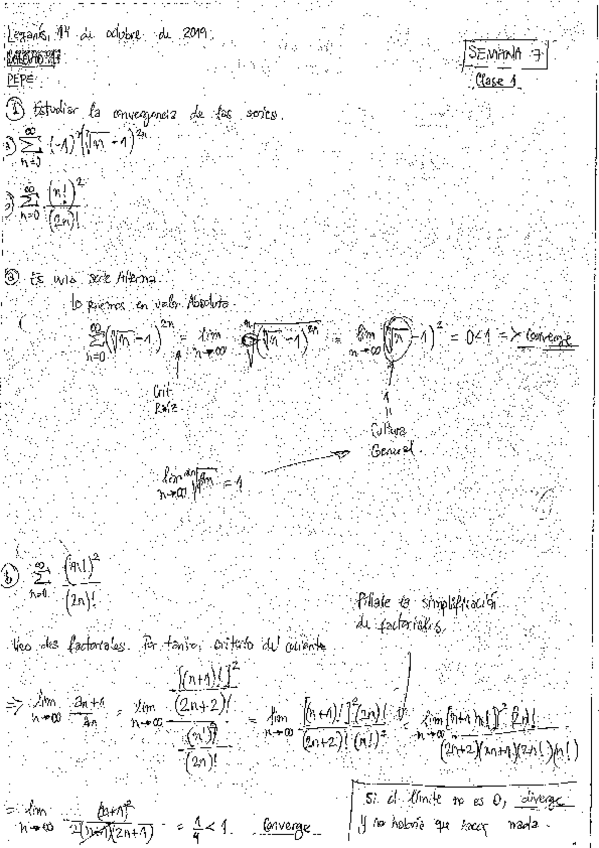 Leganés, 14 de octubre de 2019.
SEMANA 7
Clase 1
PEPE
① Estudiar la convergencia de las series.
a) \sum_{n=0}^{\infty} (-1)^n (\sqrt[n]{n} - 1)^{2n}
b) \sum_{n=0}^{\infty} \frac{(n!)^2}{(2n)!}
ⓐ Es una serie Alterna.
Lo ponemos en valor Absoluto
\sum_{n=0}^{\infty} (\sqrt[n]{n} - 1)^{2n} = \lim_{n→∞} \sqrt[n]{(\sqrt[n]{n} - 1)^{2n}} = \lim_{n→∞} (\sqrt[n]{n} - 1)^2 = 0 < 1 => Converge
Crit.
Raíz
1
=
Cultura
General.
\lim_{n→∞} = 1
ⓑ \sum_{n=0}^{\infty} \frac{(n!)^2}{(2n)!}
Fíjate la simplificación
de factoriales.
Veo dos factoriales. Por tanto, criterio del cociente
=> \lim_{n→∞} \frac{a_{n+1}}{a_n} = \lim_{n→∞} \frac{\frac{[(n+1)!]^2}{(2n+2)!}}{\frac{(n!)^2}{(2n)!}} = \lim_{n→∞} \frac{[(n+1)!]^2 (2n)!}{(2n+2)! (n!)^2} = \lim_{n→∞} \frac{[(n+1) n!]^2 (2n)!}{(2n+2)(2n+1)(2n!)(n!)}
= \lim_{n→∞} \frac{(n+1)^2}{2(n+1)(2n+1)} = \frac{1}{4} < 1. Converge
Si el límite no es 0, diverge
y no habría que hacer nada.